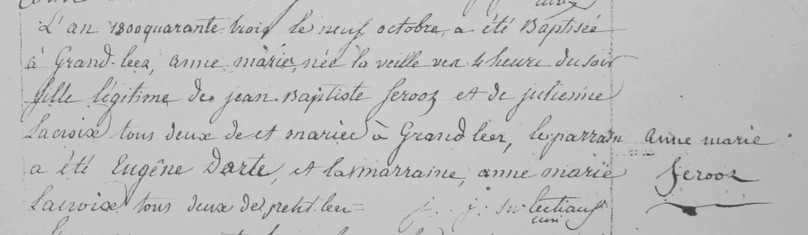 L'an 1800quarante trois le neuf octobre, a été Baptisée
à Grand-leez, anne marie, née la veille ver 4 heure du soir
fille légitime de jean Baptiste Serooz et de julienne
Lacroix tous deux de et mariee à Grand leez, le parrain
anne marie
a été Eugêne Darte, et la marraine, anne marie
Serooz
Lacroix tous deux de petit leez =
j. j.
curé